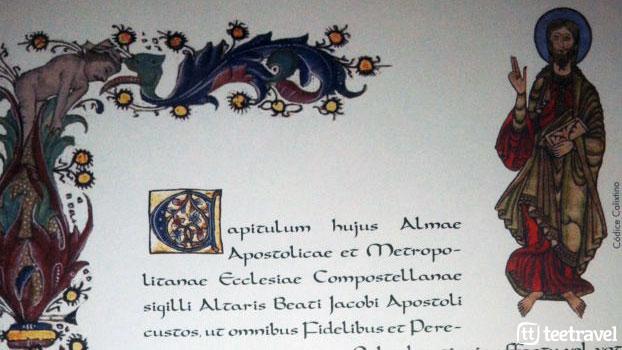 Capitulum hujus Almae
Apostolicae et Metropo-
litanae Ecclesiae Compostellanae
sigilli Altaris Beati Jacobi Apostoli
custos, ut omnibus Fidelibus et Pere-
Códice Calixtino
tt teetravel